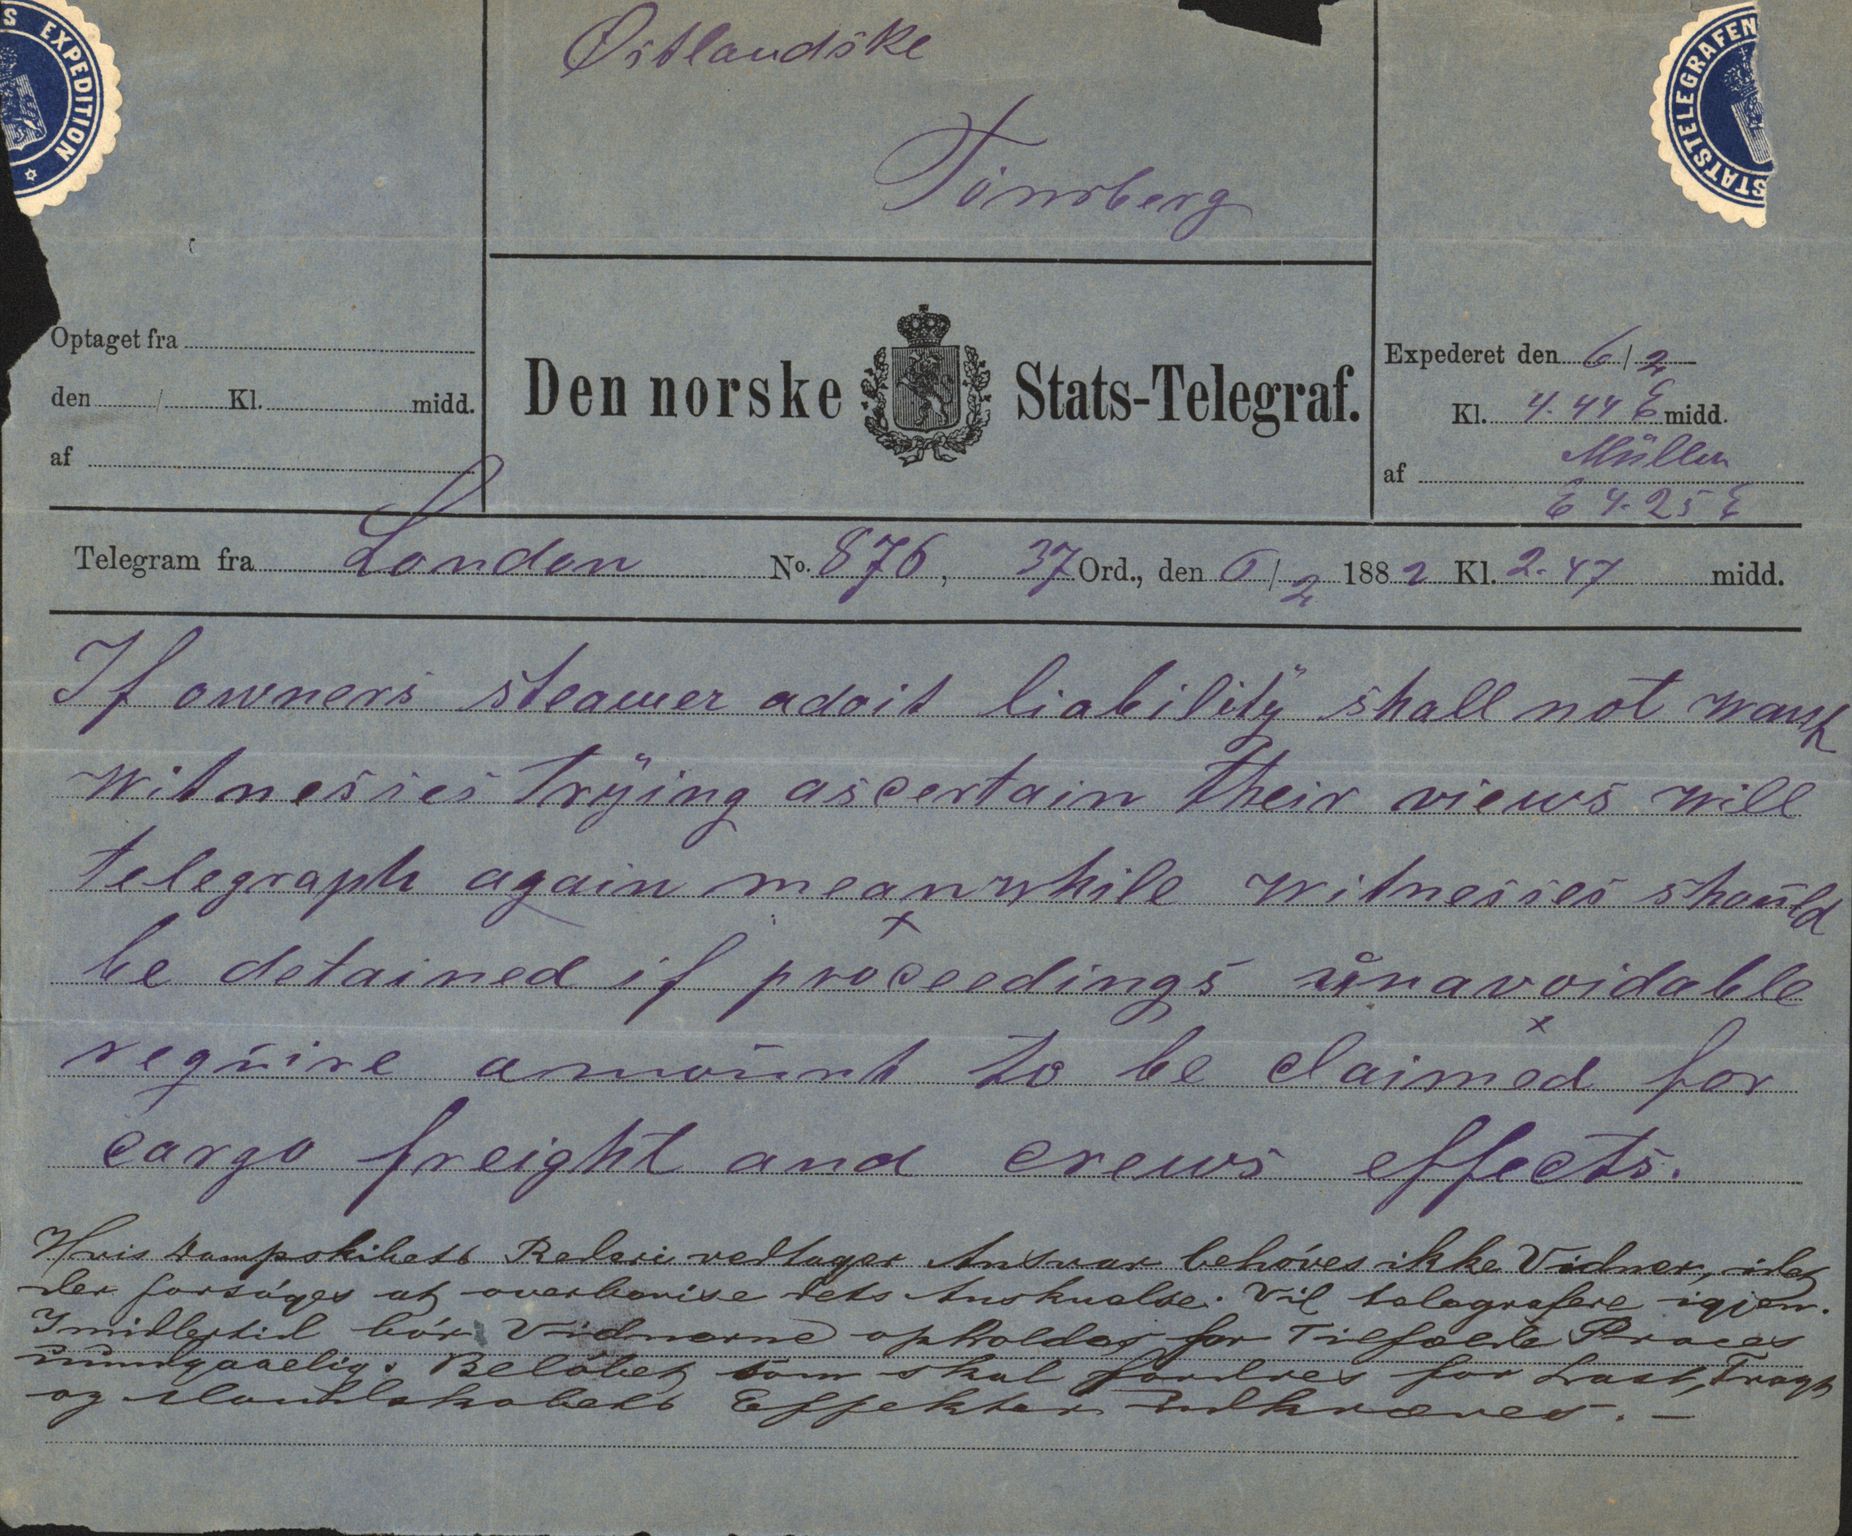 S EXPEDITION
STATSTELEGRAFEN
Østlandske
Tönsberg
Optaget fra
den / Kl. midd.
af
Den norske Stats-Telegraf.
Expederet den 6/2
Kl. 4.44 E midd.
af Müller
E 4.25 E
Telegram fra London No. 876, 37 Ord., den 6/2 1882 Kl. 2.47 midd.
If owners steamer admit liability shall not want
witnesses trying ascertain their views will
telegraph again meanwhile witnesses should
be detained if proceedings unavoidable
require amount to be claimed for
cargo freight and crews effects.
Hvis Dampskibets Rederi vedtager Ansvar behöves ikke Vidner, idet
der forsöges at overbevise dets Anskuelse. Vil telegrafere igjen.
Imidlertid bör Vidnerne opholdes for Tilfælde Proces
uundgaaelig. Belöbet som skal fordres for Last, Fragt
og Mandskabets Effekter udkræves. —